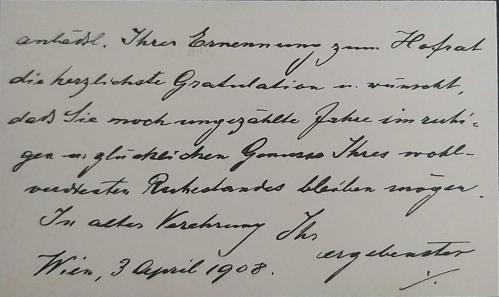 anläßl. Ihrer Ernennung zum Hofrat
die herzlichste Gratulation u. wünscht,
daß Sie noch ungezählte Jahre im ruhi-
gen u. glücklichen Genusse Ihres wohl-
verdienten Ruhestandes bleiben mögen.
In alter Verehrung Ihr
ergebenster
Wien, 3 April 1908. ./.